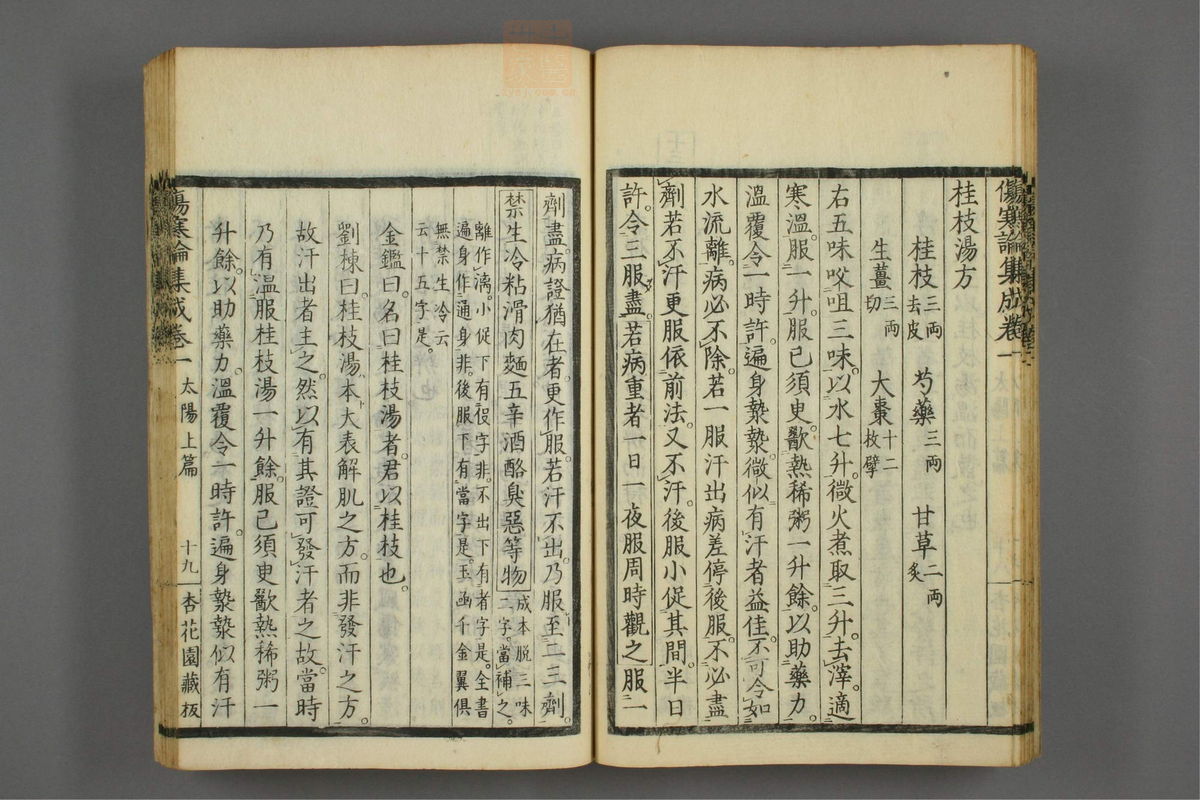 傷寒論集成卷一
桂枝湯方
桂枝三兩去皮 芍藥三兩 甘草二兩炙
生薑三兩切 大棗十二枚擘
右五味㕮咀三味以水七升微火煮取三升去滓適
寒溫服一升服已須臾歠熱稀粥一升餘以助藥力
溫覆令一時許遍身漐漐微似有汗者益佳不可令如
水流離病必不除若一服汗出病差停後服不必盡
劑若不汗更服依前法又不汗後服小促其間半日
許令三服盡若病重者一日一夜服周時觀之服一
劑盡病證猶在者更作服若汗不出乃服至二三劑
禁生冷粘滑肉麵五辛酒酪臭惡等物成本脫三味二字當補之
離作漓小促下有役字非不出下有者字是全書
遍身作通身非後服下有當字是玉函千金翼俱
無禁生冷云
云十五字是
金鑑曰名曰桂枝湯者君以桂枝也
劉棟曰桂枝湯本大表解肌之方而非發汗之方
故汗出者主之然以有其證可發汗者之故當時
乃有溫服桂枝湯一升餘服已須臾歠熱稀粥一
升餘以助藥力溫覆令一時許遍身漐漐似有汗
傷寒論集成卷一 太陽上篇 十九 杏花園藏板